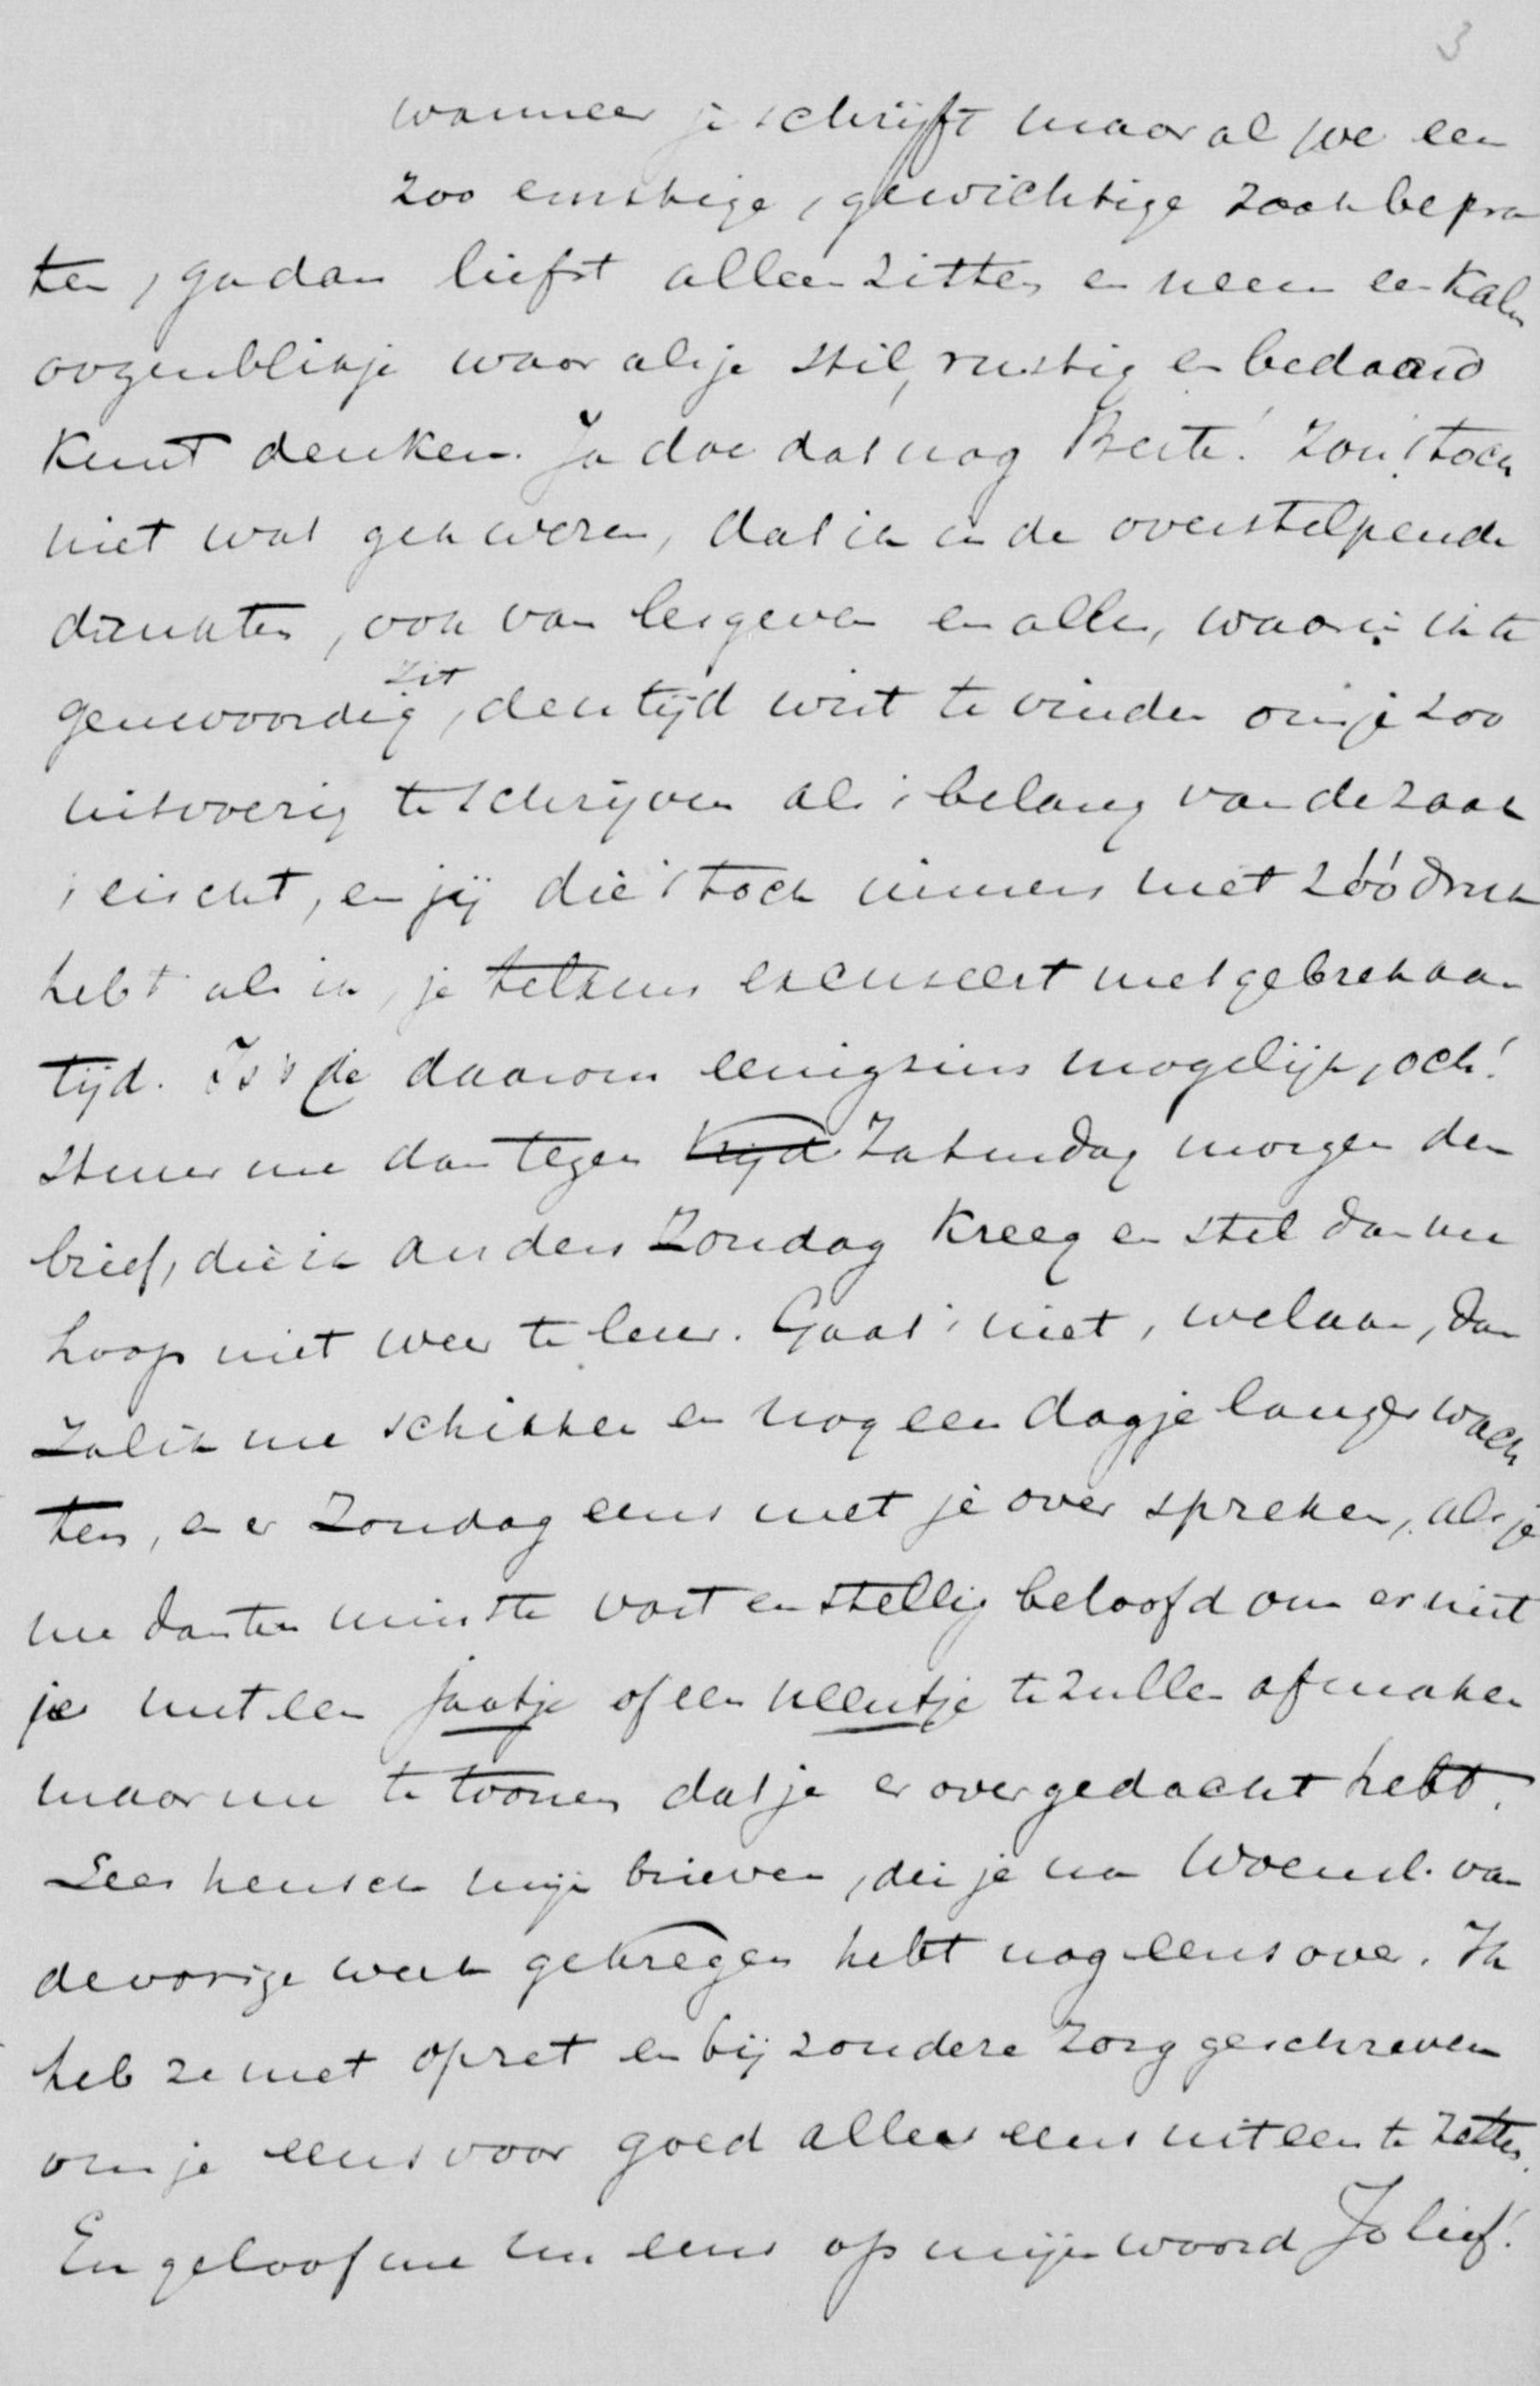 3
wanneer je schrijft maar als we een
zoo ernstige, gewichtige zaak bepra
ten, ga dan liefst alleen zitten en neem een kalm
oogenblikje waar als je stil, rustig en bedaard
kunt denken. Ja doe dat nog Beste! Zou 't toch
niet wat gek wezen, dat ik in de overstelpende
drukten, ook van lesgeven en alles, waarin ik te
genwoordig zit, den tijd wist te vinden om je zoo
uitvoerig te schrijven als 't belang van de zaak
't eischt, en jij die 't toch immers niet zóó druk
hebt als ik, je telkens excuseert met gebrek aan
tijd. Is 't je daarom eenigszins mogelijk, och!
stuur me dan tegen tijd Zaterdag morgen den
brief, die ik anders Zondag kreeg en stel dan me
hoop niet weer te leur. Gaat 't niet, welaan, dan
zal ik me schikken en nog een dagje langer wach
ten, en er Zondag eens met je over spreken, als je
me dan ten minste vast en stellig beloofd om er niet
je met een jaatje of een neentje te zullen afmaken
maar me te toonen dat je er over gedacht hebt.
Lees heusch mijn brieven, die je na Woensd. van
de vorige week gekregen hebt nog eens over. Ik
heb ze met opzet en bijzondere zorg geschreven
om je eens voor goed alles eens uiteen te zetten.
En geloof me nu eens op mijn woord Jo lief!